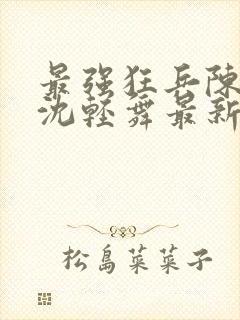 最强狂兵陳
沈輕舞最新
松島菜菜子